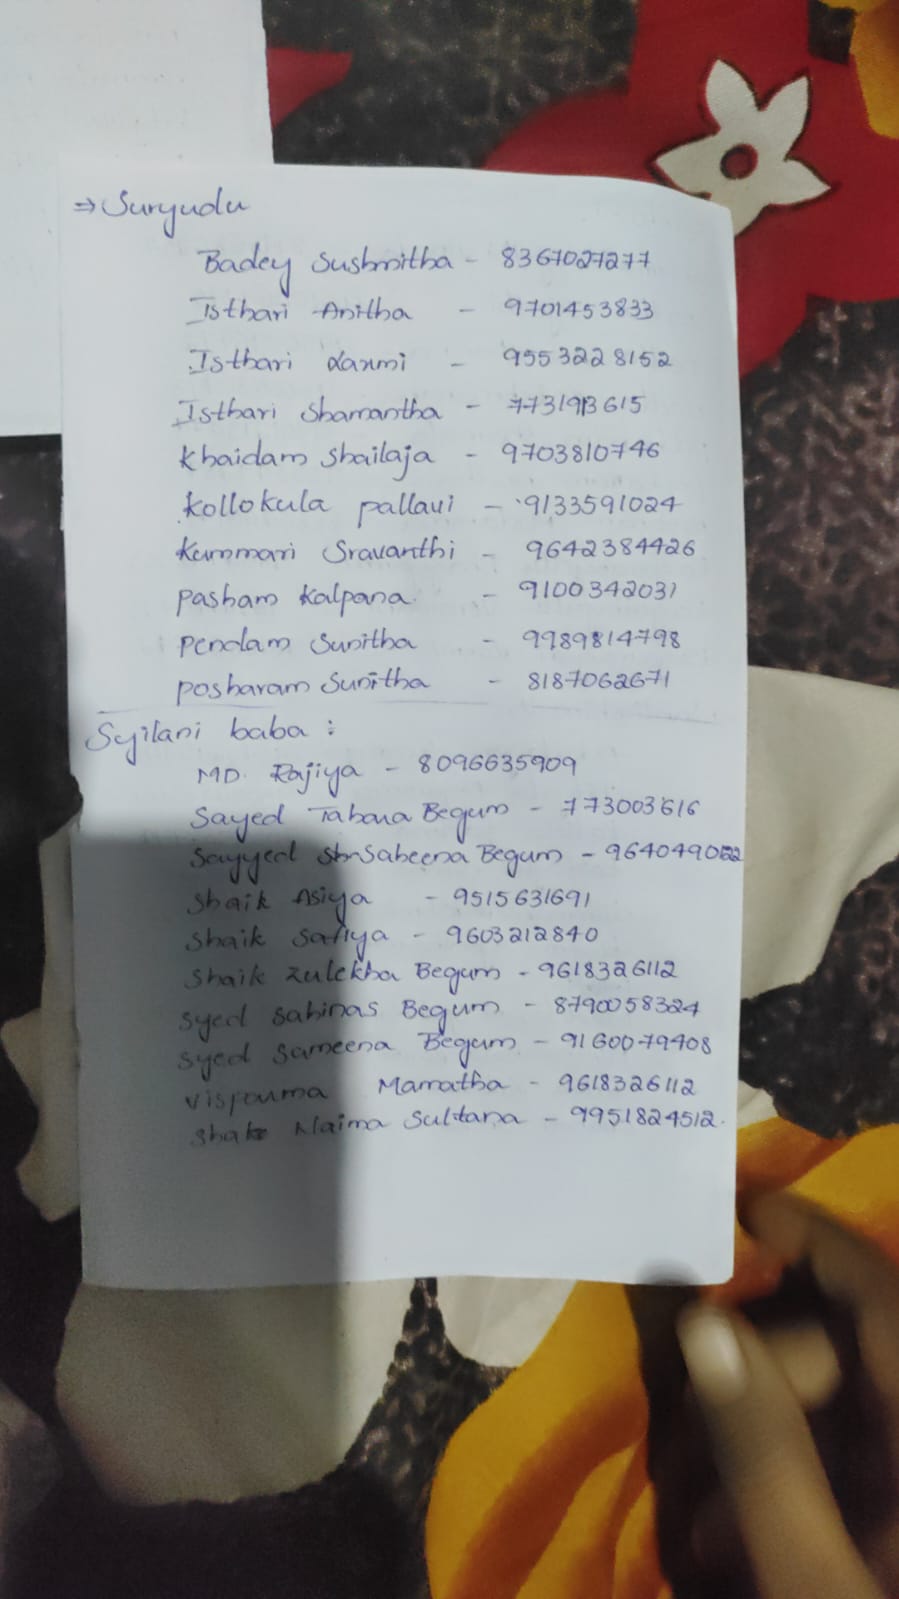 ⇒ Suryudu
Badey Sushmitha - 8367027277
Isthari Anitha - 9701453833
Isthari Laxmi - 9553228152
Isthari Shamantha -
Khaidam Shailaja - 9703810746
Kollokula pallavi - 9133591024
Kummari Sravanthi - 9642384426
Pasham Kalpana - 9100342031
Pendam Sunitha - 9989814798
posharam Sunitha - 8187062671
Syilani baba :
MD. Rajiya - 8096635909
Sayed Begum - 773003616
Sayyed Sabeena Begum -
Shaik Asiya - 9515631691
Shaik Safiya - 9603212840
Shaik Zulekha Begum - 9618326112
Syed Sabinas Begum - 8790058324
Syed Sameena Begum - 9160079408
Mamatha - 9618326112
Naima Sultana - 9951824512.